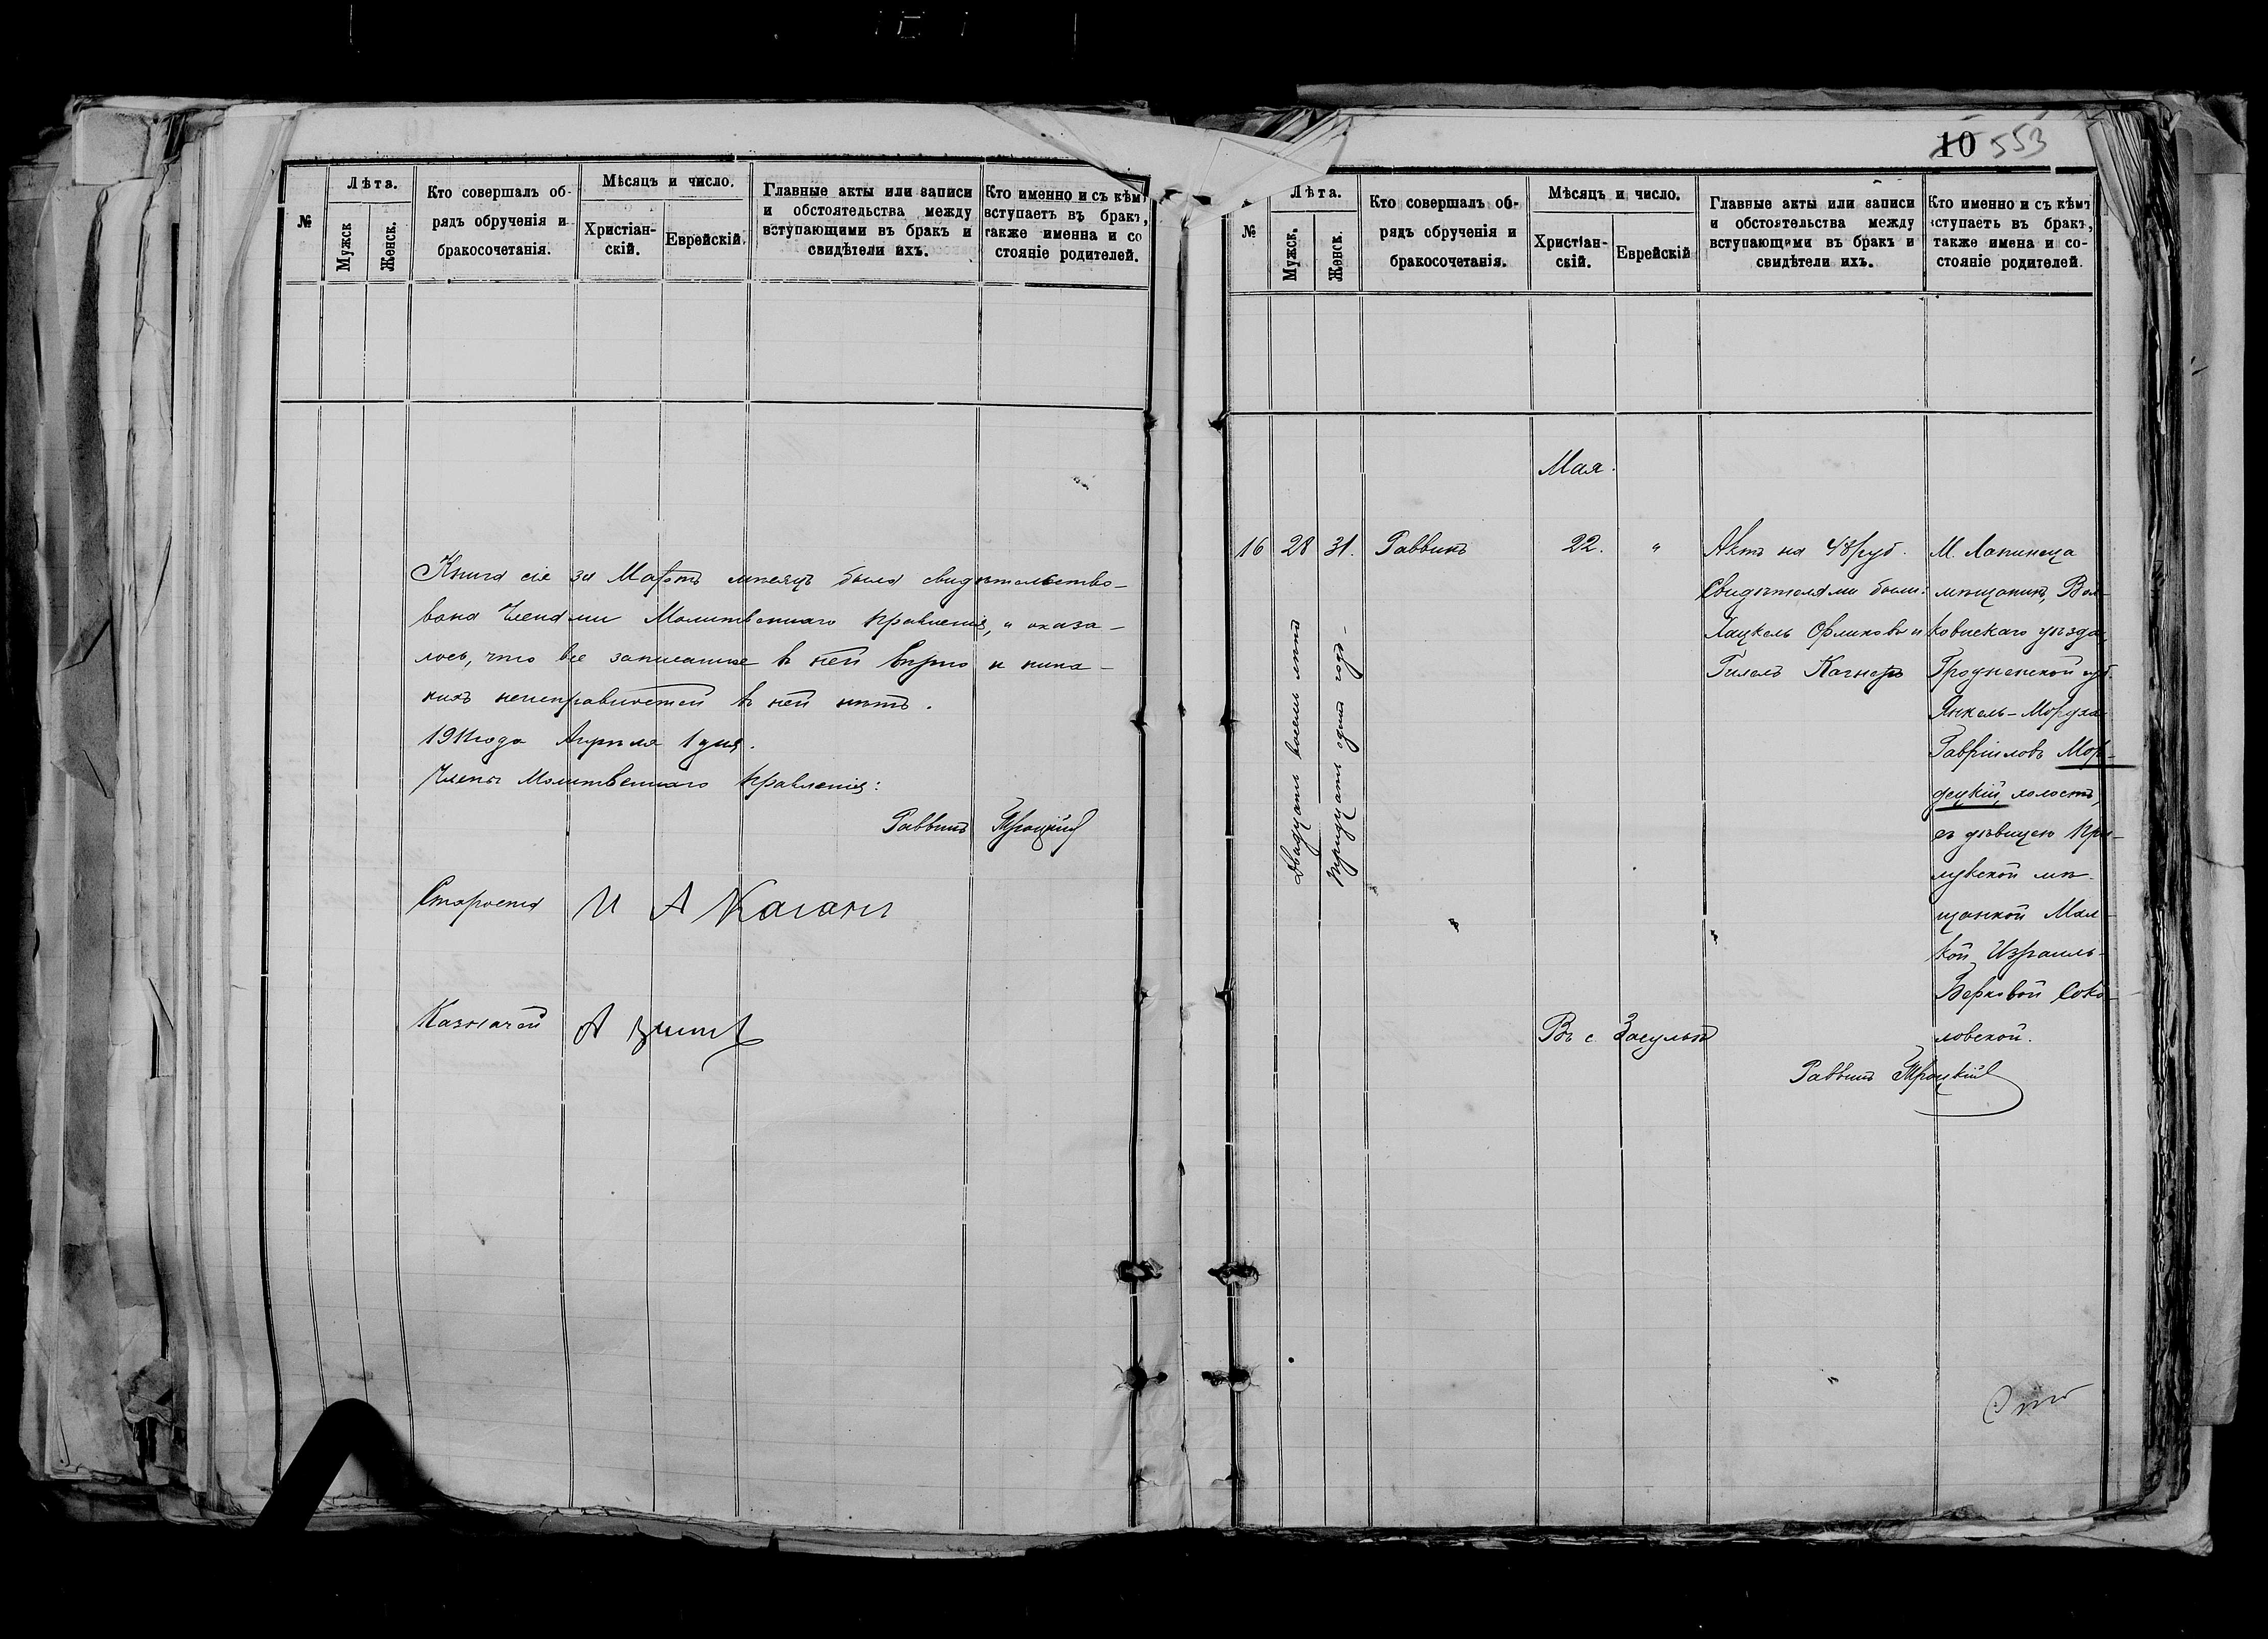 №
Лѣта.
Мужск
Женск.
Кто совершалъ об-
рядъ обрученія и
бракосочетанія.
Мѣсяцъ и число.
Христіан-
скій.
Еврейскій.
Главные акты или записи
и обстоятельства между
вступающими въ бракъ и
свидѣтели ихъ.
Кто именно и съ кѣмъ
вступаетъ въ бракъ,
также именна и со
стояніе родителей.
Книга сія за Мартъ мѣсяцъ была свидѣтельство-
вана Членами Молитвеннаго Правленія, и оказа-
лось, что все записанное въ ней вѣрно и ника-
кихъ неисправностей въ ней нѣтъ.
1911 года Апрѣля 1 дня.
Члены Молитвеннаго Правленія:
Раввинъ Троцкій
Староста И А Каганъ
Казначей А
10 553
№
Лѣта.
Мужск.
Женск.
Кто совершалъ об-
рядъ обрученія и
бракосочетанія.
Мѣсяцъ и число.
Христіан-
скій.
Еврейскій
Главные акты или записи
и обстоятельства между
вступающими въ бракъ и
свидѣтели ихъ.
Кто именно и съ кѣмъ
вступаетъ въ бракъ,
также имена и со-
стояніе родителей.
Мая.
16
28
Двадцать восемь лѣтъ
31.
Тридцать одинъ годъ
Раввинъ
22.
"
Актъ на 48 руб.
Свидѣтелями были:
Хацкель Орликовъ и
Гилель Кагнеръ
М. Лапиница
мѣщанинъ, Вол-
ковискаго уѣзда,
Гродненской губ.
Янкель-Мордха
Гавріиловъ Мор-
децкій, холостъ,
съ дѣвицею При-
лукской мѣ-
щанкой Мал-
кой Израиль-
Берковой Соко-
ловской.
Въ с. Засульѣ
Раввинъ Троцкій